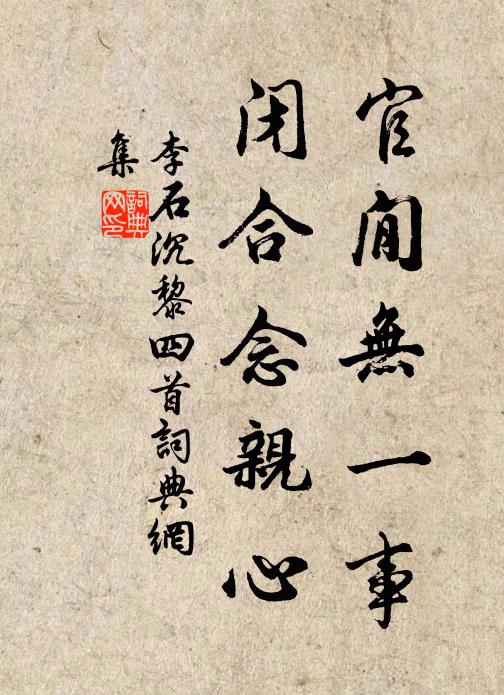 官閒無一事
閉合念親心
李石沉黎四首詞典網
集
詞典网印